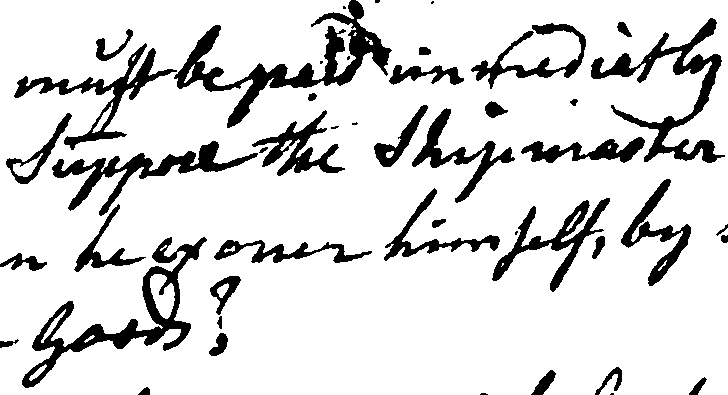 must be paid immediatly
Suppose the Shipmaster
n he exoner himself, by
- Goods?